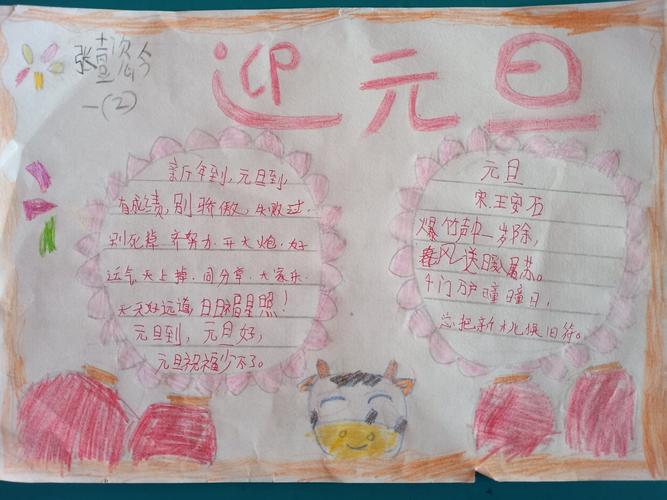 张壹
一(2)
迎元旦
新年到,元旦到
有成绩,别骄傲,失败过.
别死掉.齐努力.开大炮.好
运气.天上掉.同分享.大家乐.
天天好运道,日日福星照!
元旦到,元旦好,
元旦祝福少不了。
元旦
宋.王安石
爆竹声中一岁除,
春风送暖屠苏。
千门万户曈曈日,
总把新桃换旧符。